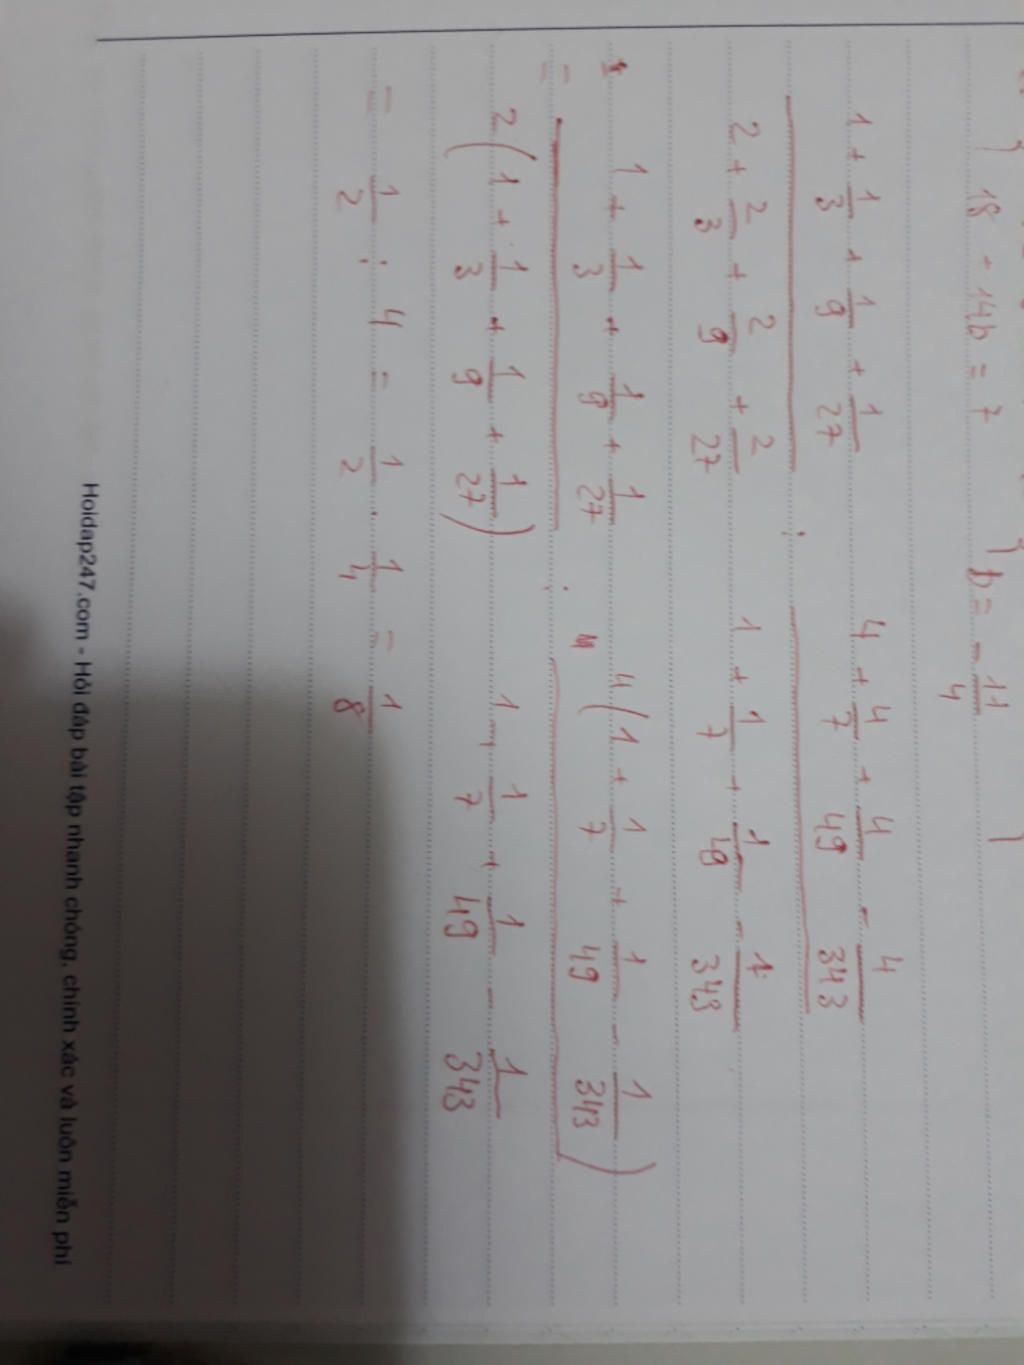 18 - 14b = 7 b = - 11/4
1 + 1/3 + 1/9 + 1/27 : 4 + 4/7 + 4/49 - 4/343
2 + 2/3 + 2/9 + 2/27 1 + 1/7 + 1/49 - 1/343
= 1 + 1/3 + 1/9 + 1/27 : 4(1 + 1/7 + 1/49 - 1/343)
2(1 + 1/3 + 1/9 + 1/27) 1 + 1/7 + 1/49 - 1/343
= 1/2 : 4 = 1/2 . 1/4 = 1/8
Hoidap247.com - Hỏi đáp bài tập nhanh chóng, chính xác và luôn miễn phí